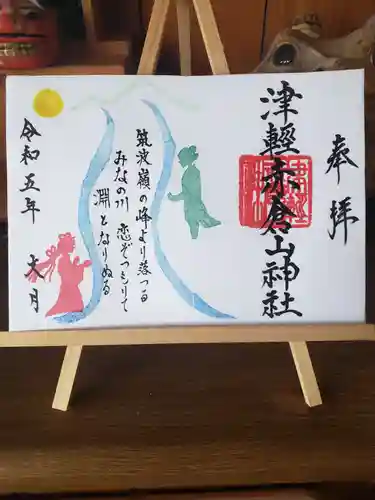 奉拝
津軽赤倉山神社
筑波嶺の峰より落つる
みなの川 恋ぞつもりて
淵となりぬる
令和五年 六月